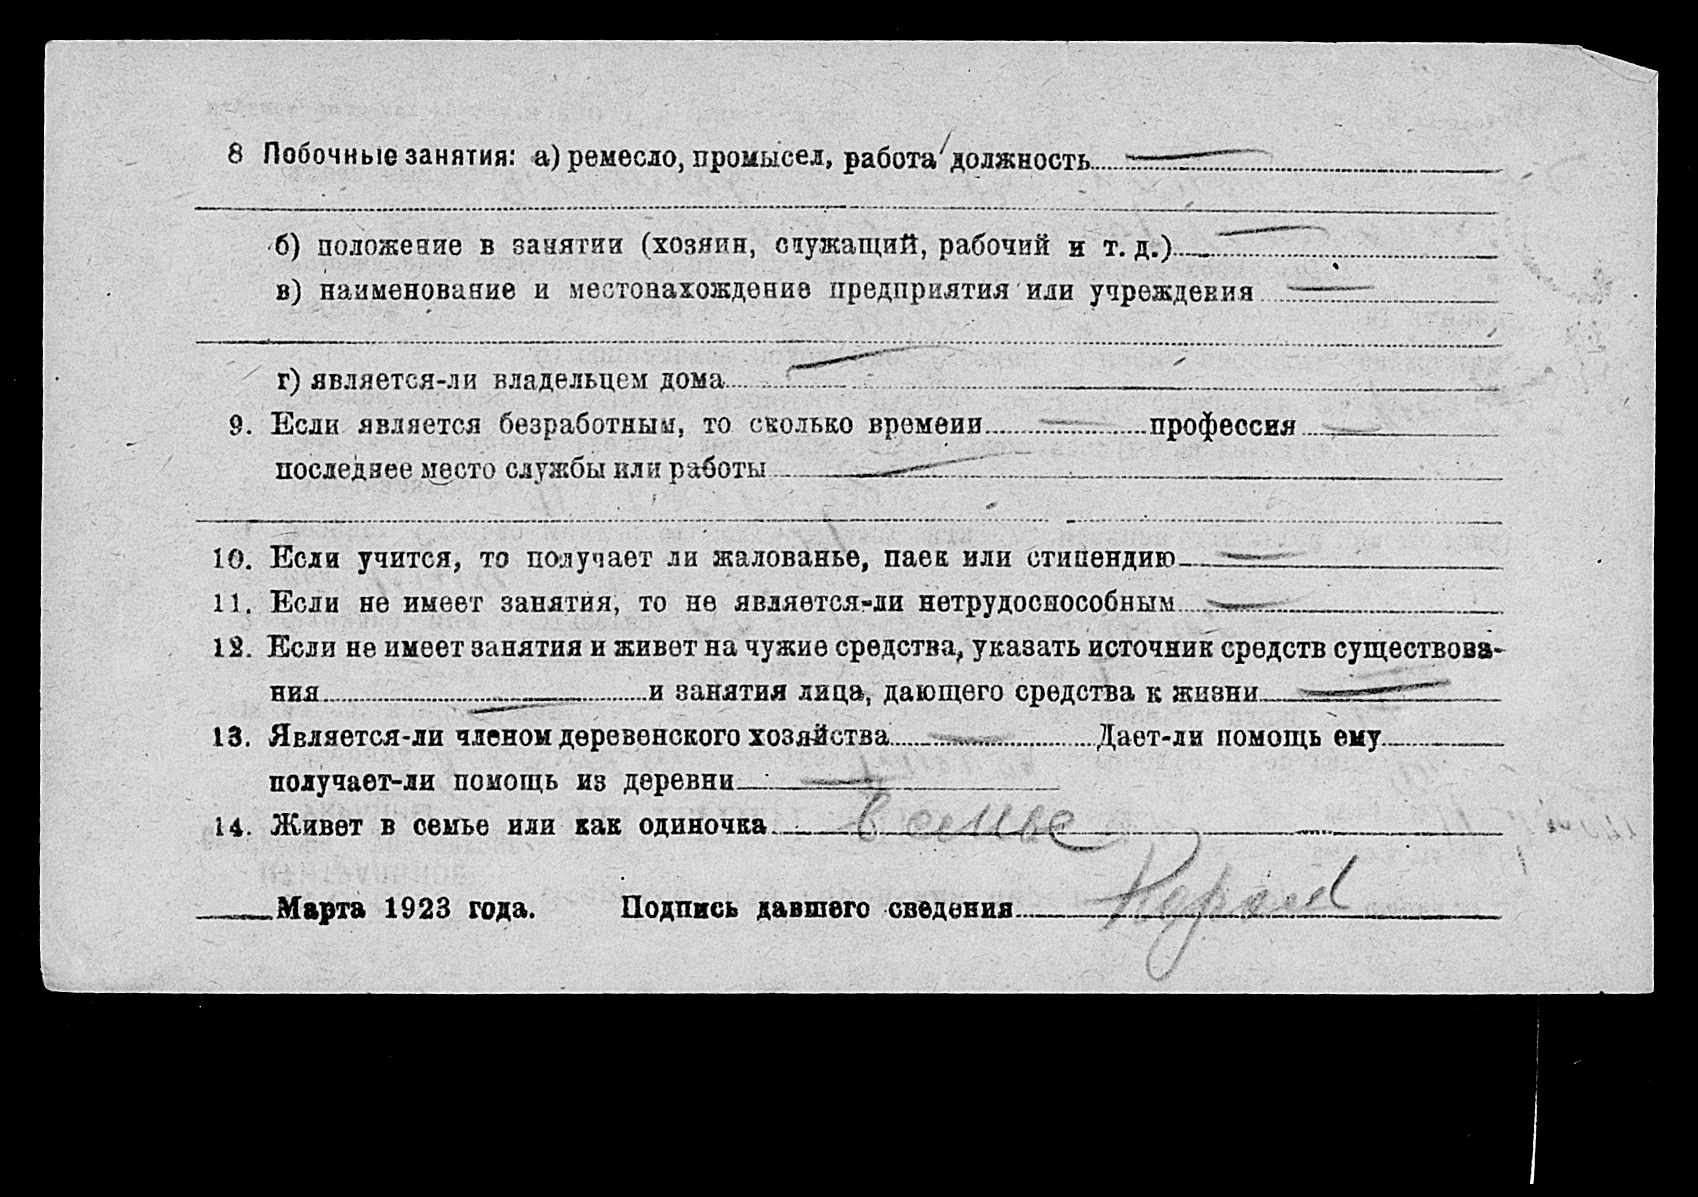 8 Побочные занятия: а) ремесло, промысел, работа должность —
б) положение в занятии (хозяин, служащий, рабочий и т. д.) —
в) наименование и местонахождение предприятия или учреждения —
г) является-ли владельцем дома —
9. Если является безработным, то сколько времени — профессия —
последнее место службы или работы —
10. Если учится, то получает ли жалованье, паек или стипендию —
11. Если не имеет занятия, то не является-ли нетрудоспособным —
12. Если не имеет занятия и живет на чужие средства, указать источник средств существова-
ния — и занятия лица, дающего средства к жизни —
13. Является-ли членом деревенского хозяйства — Дает-ли помощь ему
получает-ли помощь из деревни —
14. Живет в семье или как одиночка в семье
Марта 1923 года. Подпись давшего сведения